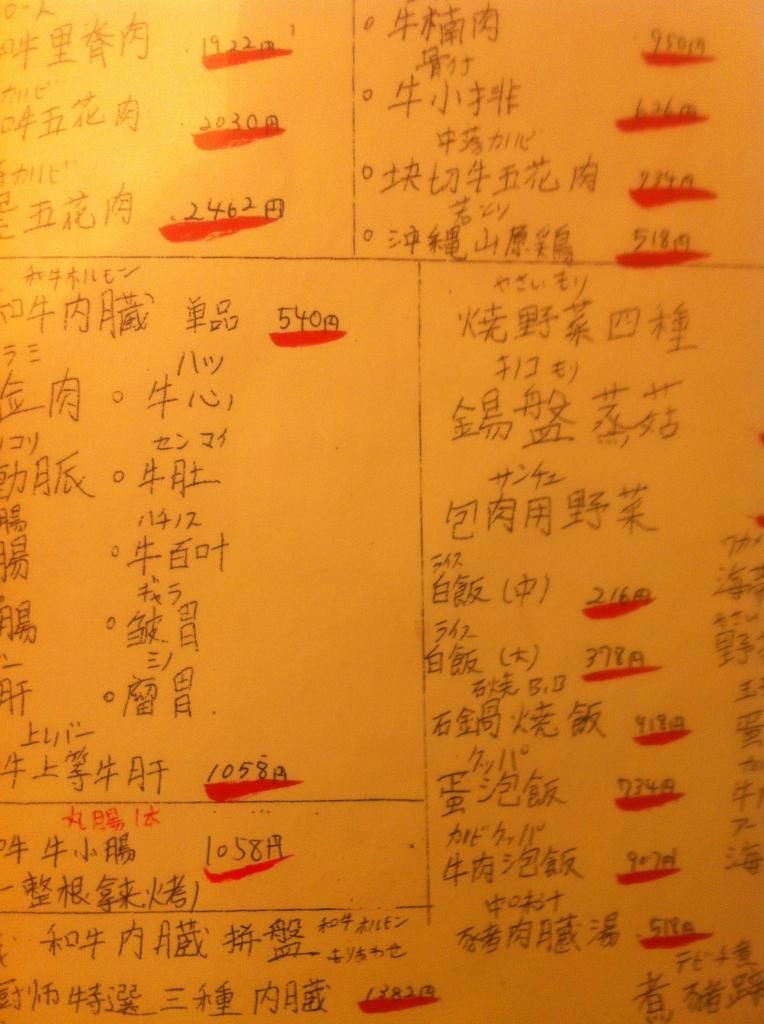 ロース
和牛里脊肉 1922円
カルビ
和牛五花肉 2030円
カルビ
五花肉 2462円
牛楠肉 950円
骨付
牛小排 626円
中落カルビ
块切牛五花肉 734円
若とり
沖縄山原鶏 518円
和牛ホルモン
和牛内臓 単品 540円
ラミ ハツ
肉 牛心
コリ センマイ
動脈 牛肚
腸 ハチノス
腸 牛百叶
ギャラ
腸 皺胃
ミノ
肝 瘤胃
上レバー
牛上等牛肝 1058円
丸腸1本
牛牛小腸 1058円
一整根拿来烤
和牛内臓拼盤 和牛ホルモン
もりあわせ
厨师特選三種内臓 1382円
やさいもり
焼野菜四種
キノコもり
錫盤蒸菇
サンチュ
包肉用野菜
ライス
白飯(中) 216円
ライス
白飯(大) 378円
石焼B.B
石鍋焼飯 918円
クッパ
蛋泡飯 734円
カルビクッパ
牛肉泡飯 907円
中味汁
猪肉臓湯 518円
ワカメ
海
やさい
野
玉子
蛋
牛
海
テビチ煮
煮猪蹄